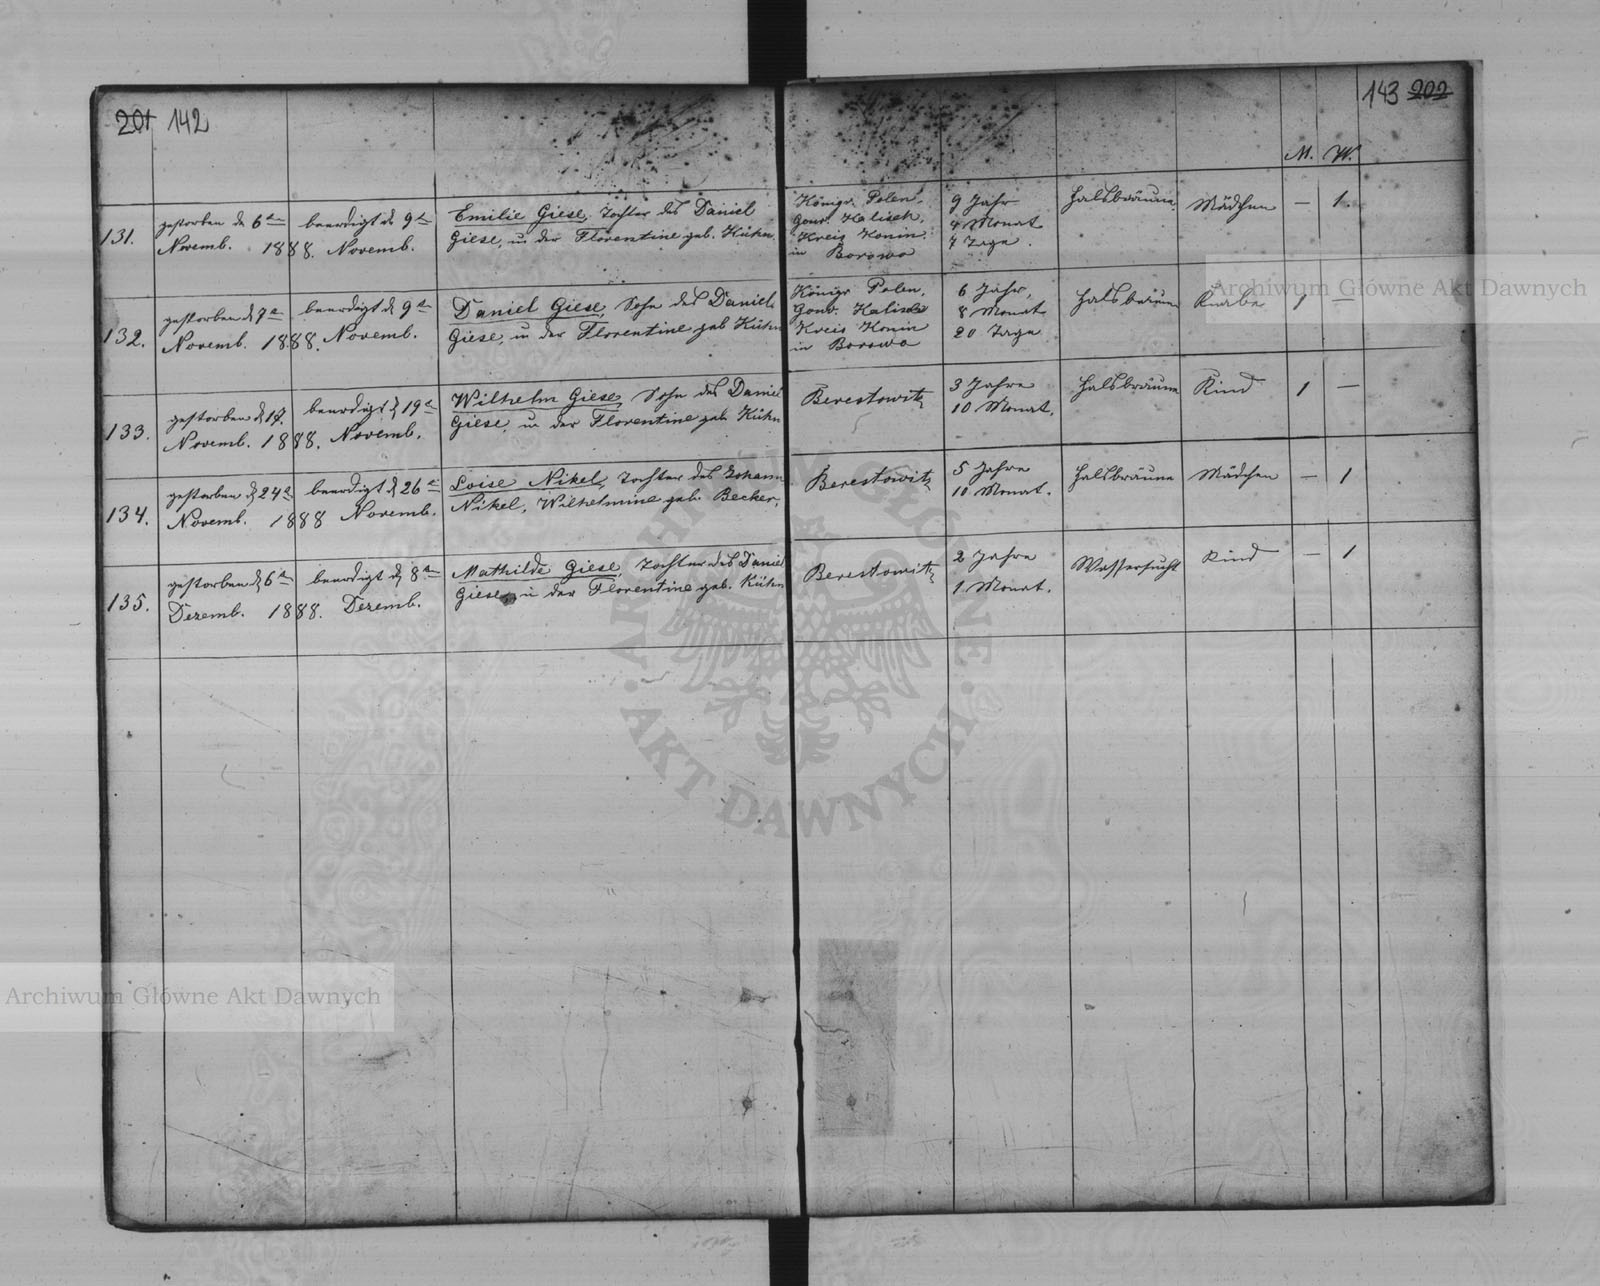 201 142
143 202
M. W.
131.
gestorben d. 6ten
Novemb. 1888.
beerdigt d. 9ten
Novemb.
Emilie Giese, Tochter des Daniel
Giese, u. der Florentine geb. Kühn.
Königr. Polen,
Gouv. Kalisch,
Kreis Konin,
in Borowo
9 Jahr
4 Monat
7 Tage.
Halsbräune.
Mädchen
—
1.
132.
gestorben d. 7ten
Novemb. 1888.
beerdigt d. 9ten
Novemb.
Daniel Giese, Sohn des Daniel
Giese, u. der Florentine geb Kühn
Königr Polen,
Gouv. Kalisch
Kreis Konin
in Borowo
6 Jahr,
8 Monat
20 Tage
Halsbräune
Knabe
1
—
133.
gestorben d.
Novemb. 1888.
beerdigt d. 19ten
Novemb.
Wilhelm Giese, Sohn des Daniel
Giese, u. der Florentine geb Kühn
Berestowitz
3 Jahre
10 Monat.
Halsbräune
Kind
1
—
134.
gestorben d. 24ten
Novemb. 1888
beerdigt d. 26ten
Novemb.
Loise Nikel, Tochter des Johann
Nikel, Wilhelmine geb. Becker,
Berestowitz
5 Jahre
10 Monat.
Halsbräune
Mädchen
—
1
135.
gestorben d. 6ten
Dezemb. 1888.
beerdigt d. 8ten
Dezemb.
Mathilde Giese, Tochter des Daniel
Giese, u der Florentine geb. Kühn
Berestowitz
2 Jahre
1 Monat.
Wassersucht
Kind
—
1
Archiwum Główne Akt Dawnych
ARCHIWUM GŁÓWNE
AKT DAWNYCH
Archiwum Główne Akt Dawnych